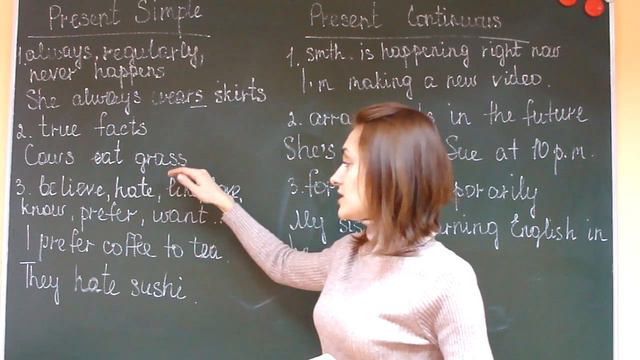 Present Simple
1. always, regularly,
never happens
She always wears skirts
2. true facts
Cows eat grass
3. believe, hate,
know, prefer, want
I prefer coffee to tea.
They hate sushi.
Present Continuous
1. smth. is happening right now
I'm making a new video.
2. in the future
She's Sue at 10 p.m.
3.
My English in